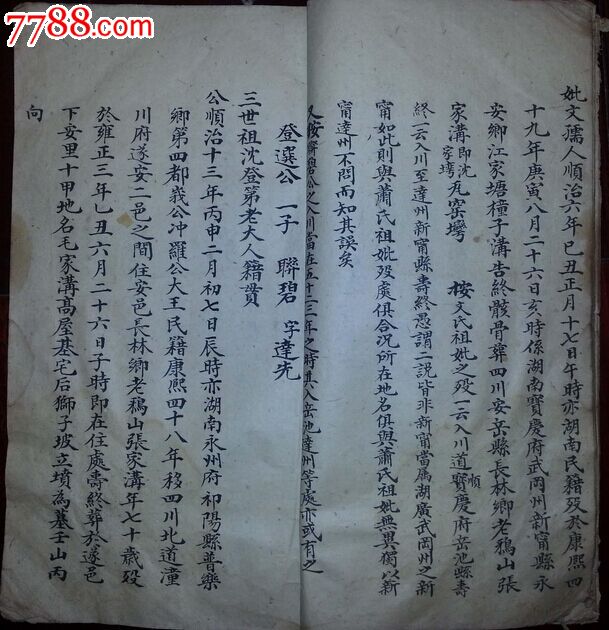 7788.com
妣文孺人順治六年已丑正月十七日午時亦湖南民籍殁於康熙四
十九年庚寅八月二十六日亥時係湖南寶慶府武岡州新甯縣永
安鄉江家塘橦子溝告終骸骨葬四川安岳縣長林鄉老鴉山張
家溝即沈家塆瓦窑塆 按文氏祖妣之殁一云入川道順寶慶府岳池縣壽
終一云入川至達州新甯縣壽終愚謂二説皆非新甯當属湖廣武岡州之新
甯如此則與蕭氏祖妣殁處俱合况所在地名俱與蕭氏祖妣無異獨以新
甯達州不問而知其誤矣
又按聯碧公之入川當在五十二三年之時其入岳池達州等處亦或有之
登選公 一子 聯碧 字達先
三世祖沈登第老大人籍貫
公順治十三年丙申二月初七日辰時亦湖南永州府祁陽縣普樂
鄉第四都峩公冲羅公大王民籍康熙四十八年移四川北道潼
川府遂安二邑之間住安邑長林鄉老鴉山張家溝年七十歳殁
於雍正三年乙丑六月二十六日子時即在住處壽終葬於遂邑
下安里十甲地名毛家溝高屋基宅后獅子坡立墳為墓壬山丙
向